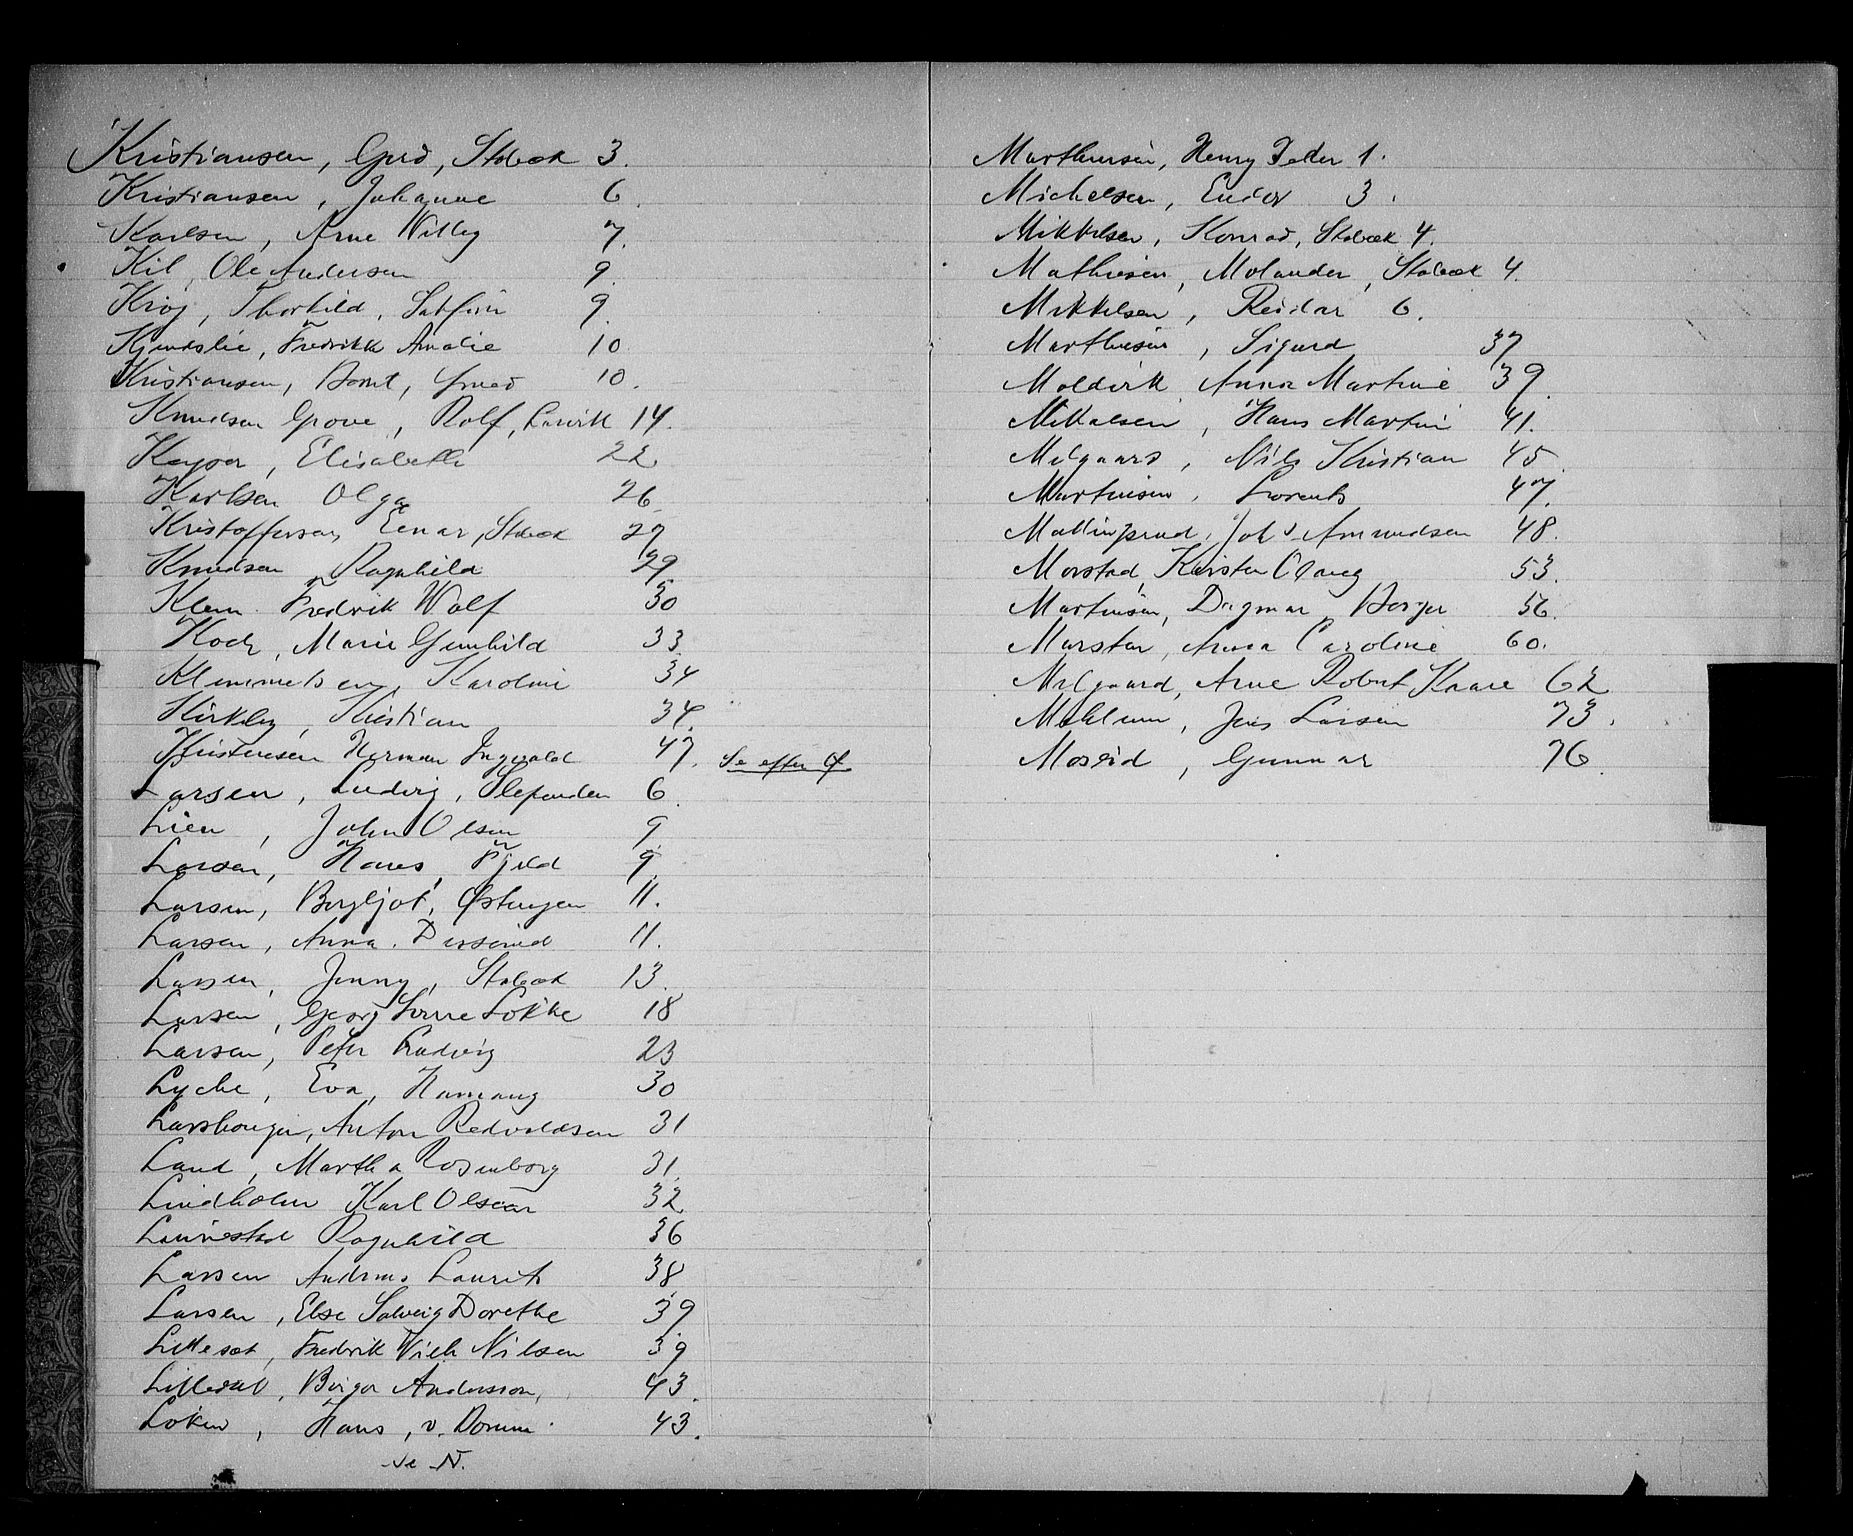 Kristiansen, Gerd, Stabæk 3.
Kristiansen, Johanne 6.
Karlsen, Arne Willy 7.
Kil, Ole Andersen 9.
Krog, Thorhild, 9.
Fredrikke Amalie 10
Kristiansen, Bernt, 10.
Knudsen Grove, Rolf, Larvik 14.
Keyser, Elisabeth 22
Karlsen Olga 26
Kristoffersen, Einar, Stabæk 27
Knudsen Ragnhild 29
Klem Fredrik Wolf 30
Koch, Marie Gunhild 33.
Klemmetsen, Karoline 34
Kirkeby, Kristian 34.
Kristensen Herman Ingvald 47. Se efter Ø
Larsen, Ludvig, Slependen 6.
Lien, John Olsen 9
Larsen, Hans, Fjeld 9.
Larsen, Bergljot, Østengen 11.
Larsen, Anna. 11.
Larsen, Jenny, Stabæk 13.
Larsen, Georg Løkke 18
Larsen, Peter Ludvig 23
Lyche, Eva, Hamang 30
Anton Redvaldsen 31
Land, Martha Rosenborg 31.
Lindholm Karl Olsen 32
Linnestad Ragnhild 36
Larsen Andreas Laurits 38
Larsen, Else Solveig Dorethe 39
Lillesæt, Fredrik Wilh Nilsen 39
Lilledal, Birger Anderssen, 43.
Løken, Hans, v. 43.
Se N.
Marthinsen, Henry Peder 1.
Michelsen, Endor 3.
Mikkelsen, Konrad, Stabæk 4.
Mathiesen, Molander, Stabæk 4.
Mikkelsen, Reidar 6.
Marthinsen, Sigurd 37
Anna Martine 39.
Mikalsen, Hans Martin 41.
Melgaard, Nils Kristian 45.
Martinsen, Lorents 47.
Johs Amundsen 48.
Morstad, Kirsten Olaug 53.
Martinsen, Dagmar Borger 56.
Anna Caroline 60.
Melgaard, Arne Robert Kaare 62
Mehlum, Jens Larsen 73.
Moseid, Gunnar 76.